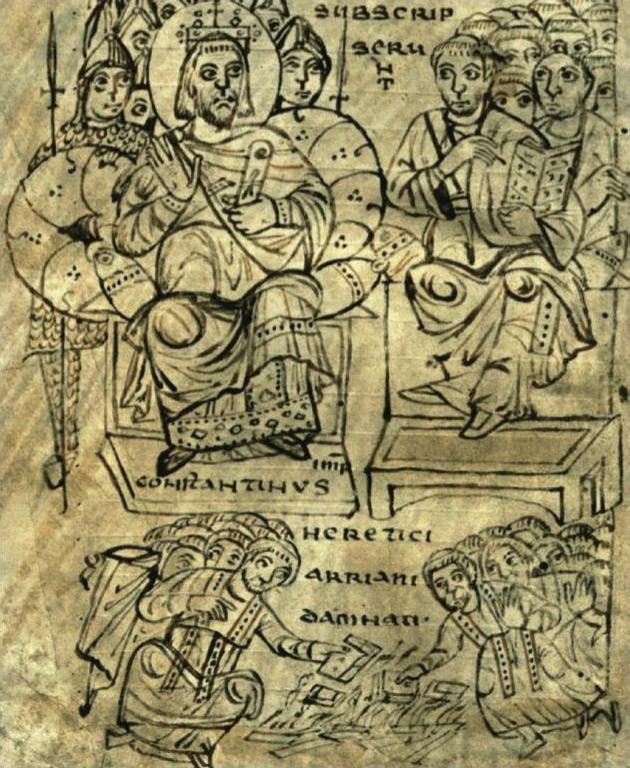 SUBSCRIP
SERU
NT
CONSTANTINUS IMP
HERETICI
ARRIANI
DAMNATI·